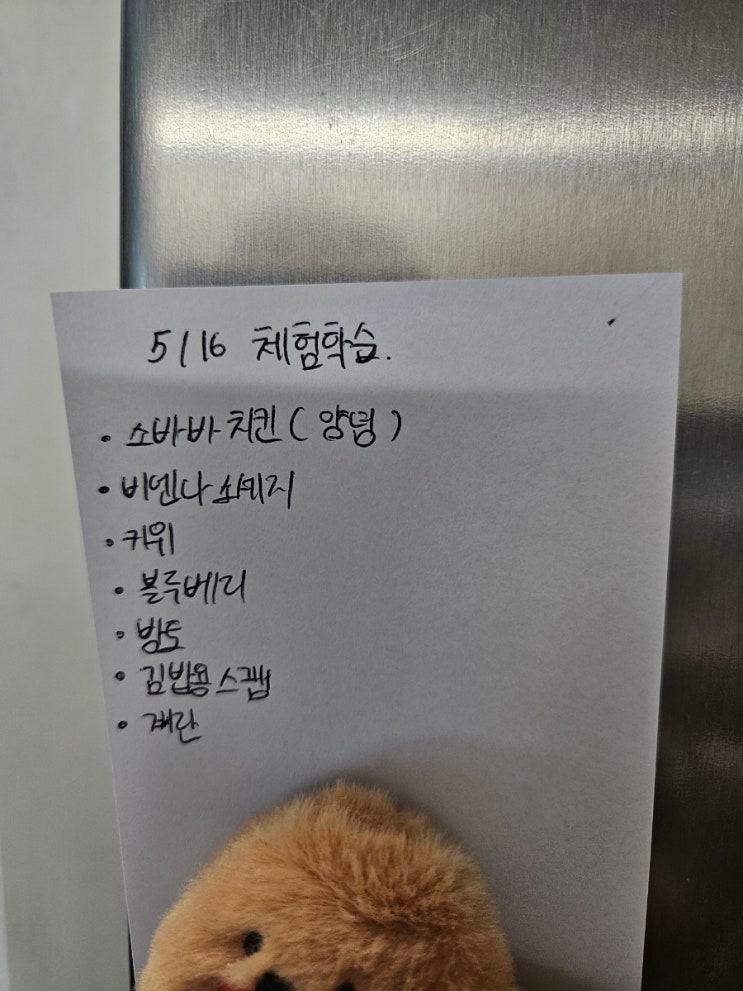 5/16 체험학습.
• 소바바 치킨 ( 양념 )
• 비엔나 쏘세지
• 키위
• 블루베리
• 방토
• 김밥용 스팸
• 계란